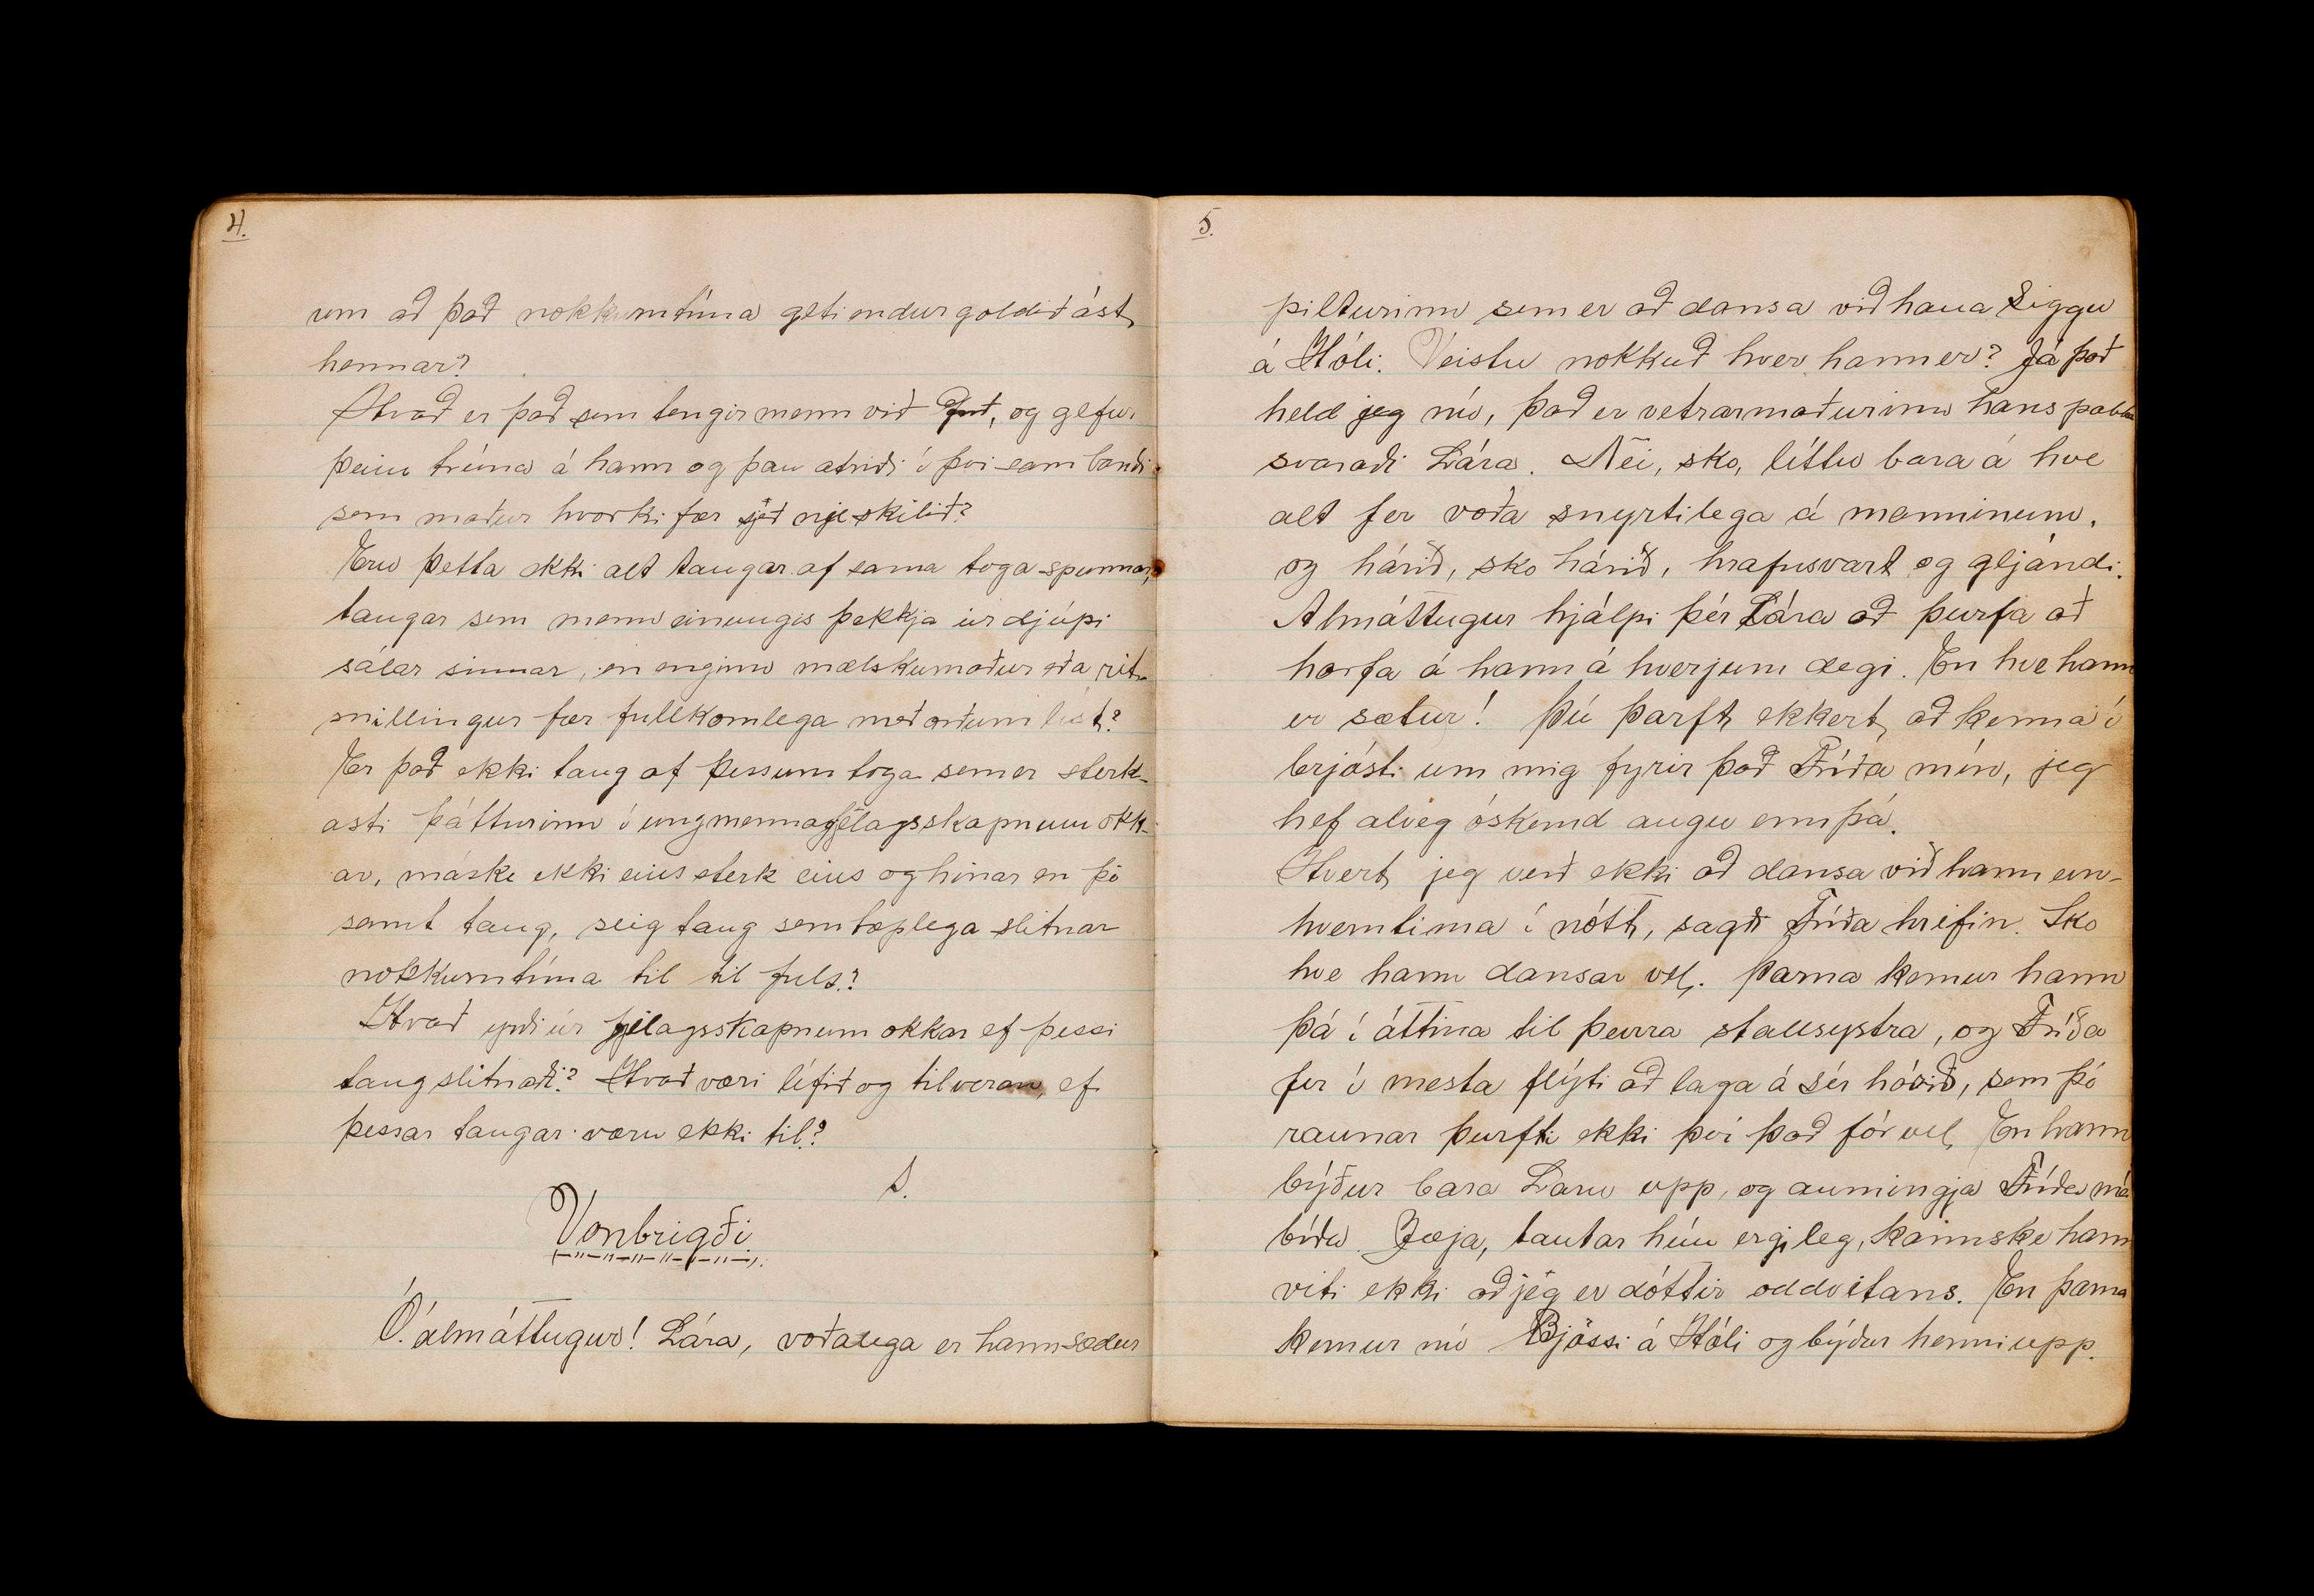 4.
um að það nokkurntíma geti endurgoldið ást
hennar?
Hvað er það sem tengir menn við Guð, og gefur
þeim trúna á hann og þau atriði í því sambandi
sem maður hvorki fær sjéð nje skilið?
Eru þetta ekki alt taugar af sama toga spunnar,
taugar sem menn einungis þekkja úr djúpi
sálar sinnar, en enginn mælskumaður eða rit-
snillingur fær fullkomlega með orðum lýst?
Er það ekki taug af þessum toga sem er sterk-
asti þátturinn í ungmennafjélagsskapnum okk-
ar, máske ekki eins sterk eins og hinar en þó
samt taug, seig taug sem tæplega slitnar
nokkurntíma til til fuls?
Hvað yrði úr fjelagsskapnum okkar ef þessi
taug slitnaði? Hvað væri lífið og tilveran, ef
þessar taugar væru ekki til?
S.
Vonbrigði
Ó! almáttugur! Lára, voðalega er hann sædur
5.
pilturinn sem er að dansa við hana Siggu
á Hóli. Veistu nokkuð hver hann er? Já það
held jeg nú, það er vetrarmaðurinn hans pabba
svaraði Lára. Nei, sko, líttu bara á hve
alt fer voða snyrtilega á manninum,
og hárið, sko hárið, hrafnsvart og gljándi.
Almáttugur hjálpi þér Lára að þurfa að
horfa á hann á hverjum degi. En hve hann
er sætur! Þú þarft ekkert að kenna í
brjósti um mig fyrir það Fríða mín, jeg
hef alveg óskemd augu ennþá.
Hvert jeg verð ekki að dansa við hann ein-
hverntima í nótt, sagði Fríða hrifin. Sko
hve hann dansar vel. Þarna kemur hann
þá í áttina til þeirra stallsystra, og Fríða
fer í mesta flýti að laga á sér hárið, sem þó
raunar þurfti ekki því það fór vel, En hann
býður bara Láru upp, og aumingja Fríða má
bíða. Jæja, tautar hún ergileg, kannske hann
viti ekki að jég er dóttir oddvitans. En þarna
kemur nú Bjössi á Hóli og býður henni upp.